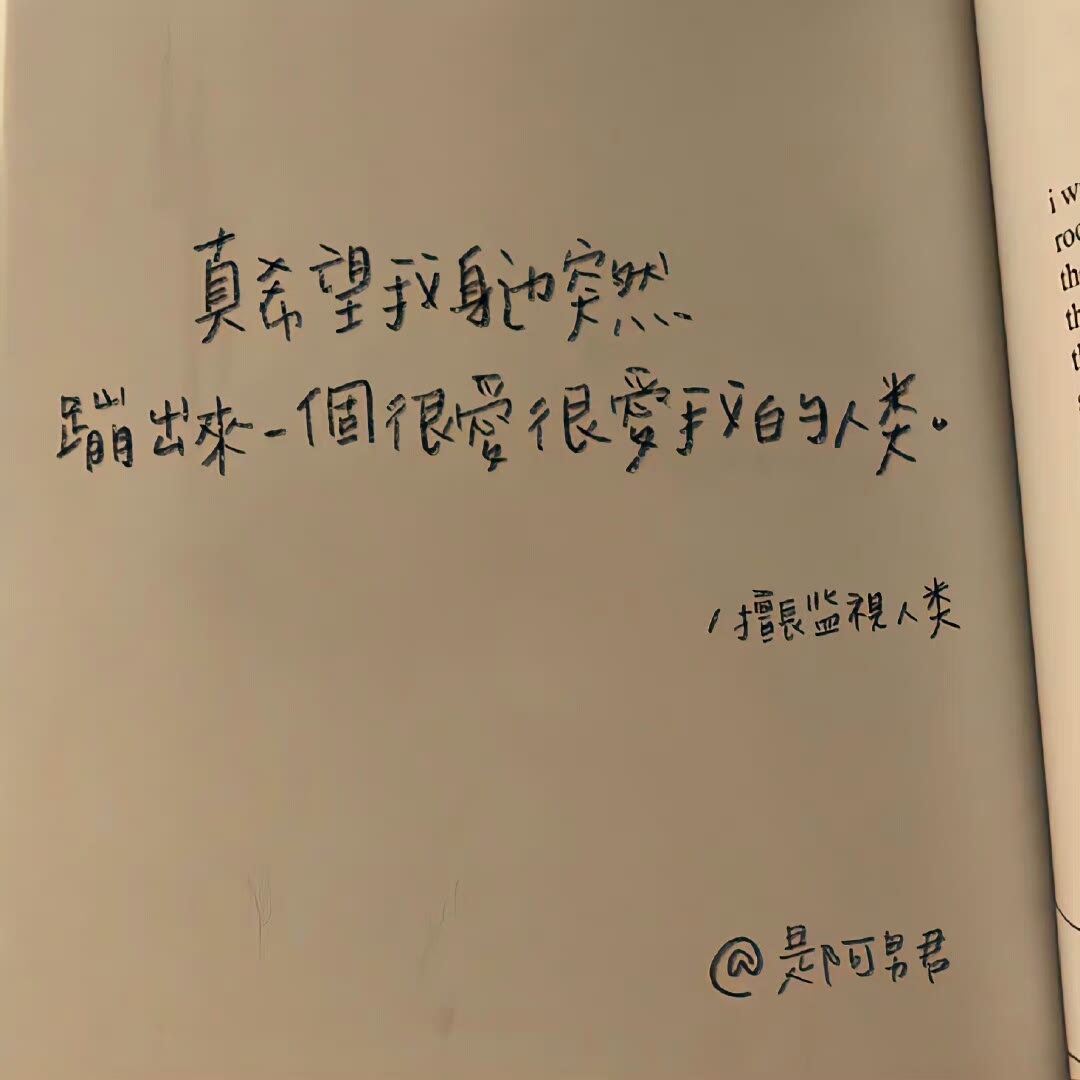 真希望我身边突然
蹦出來一個很愛很愛我的人类。
/擅長监視人类
@是阿男君
i w
roo
th
th
t